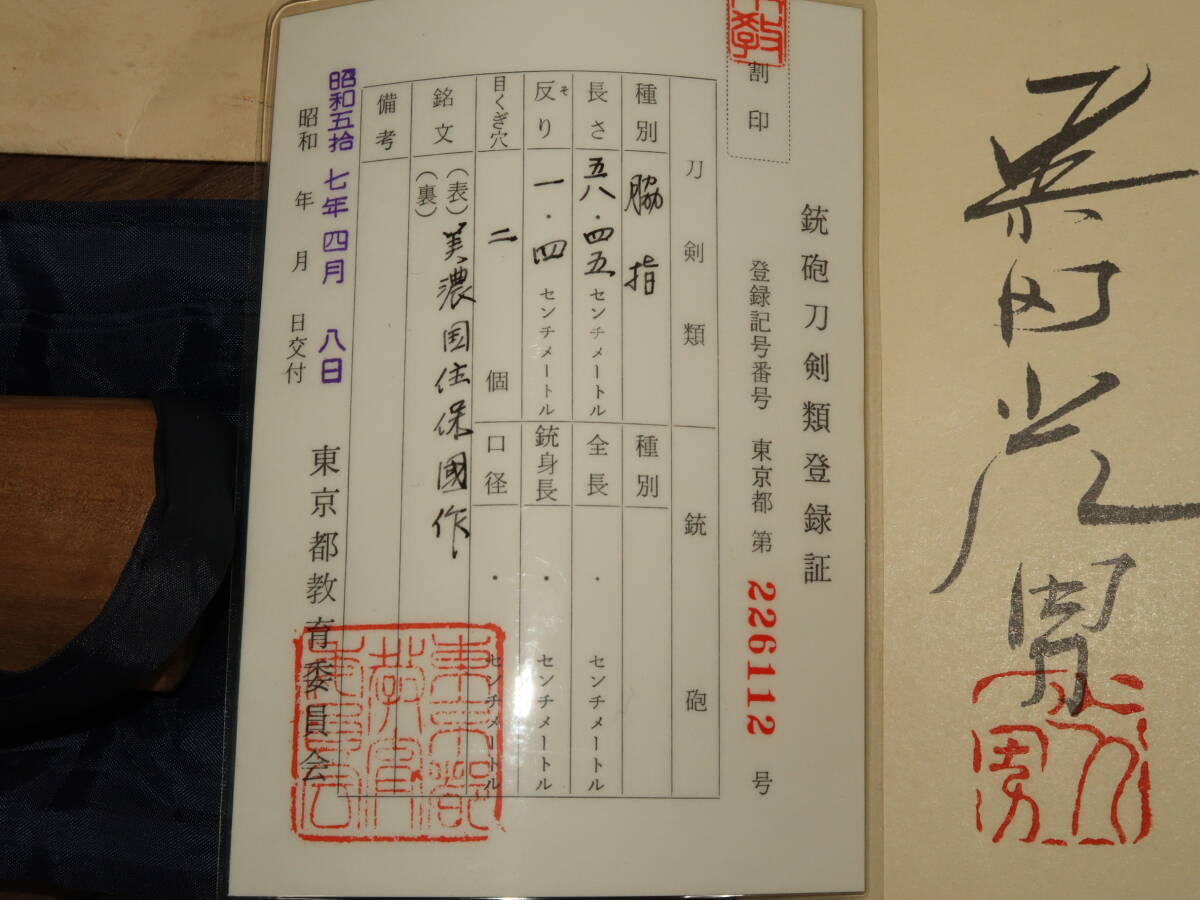 銃砲刀剣類登録証
登録記号番号 東京都 第 226112 号
割印
刀剣類 銃砲
種別 脇指 種別
長さ 五八・四五 センチメートル 全長 ・ センチメートル
反り そ 一・四 センチメートル 銃身長 ・ センチメートル
目くぎ穴 二 個 口径 ・ センチメートル
銘文 (表) 美濃国住保國作
(裏)
備考
昭和五拾七年四月八日
昭和 年 月 日交付
東京都教育委員会